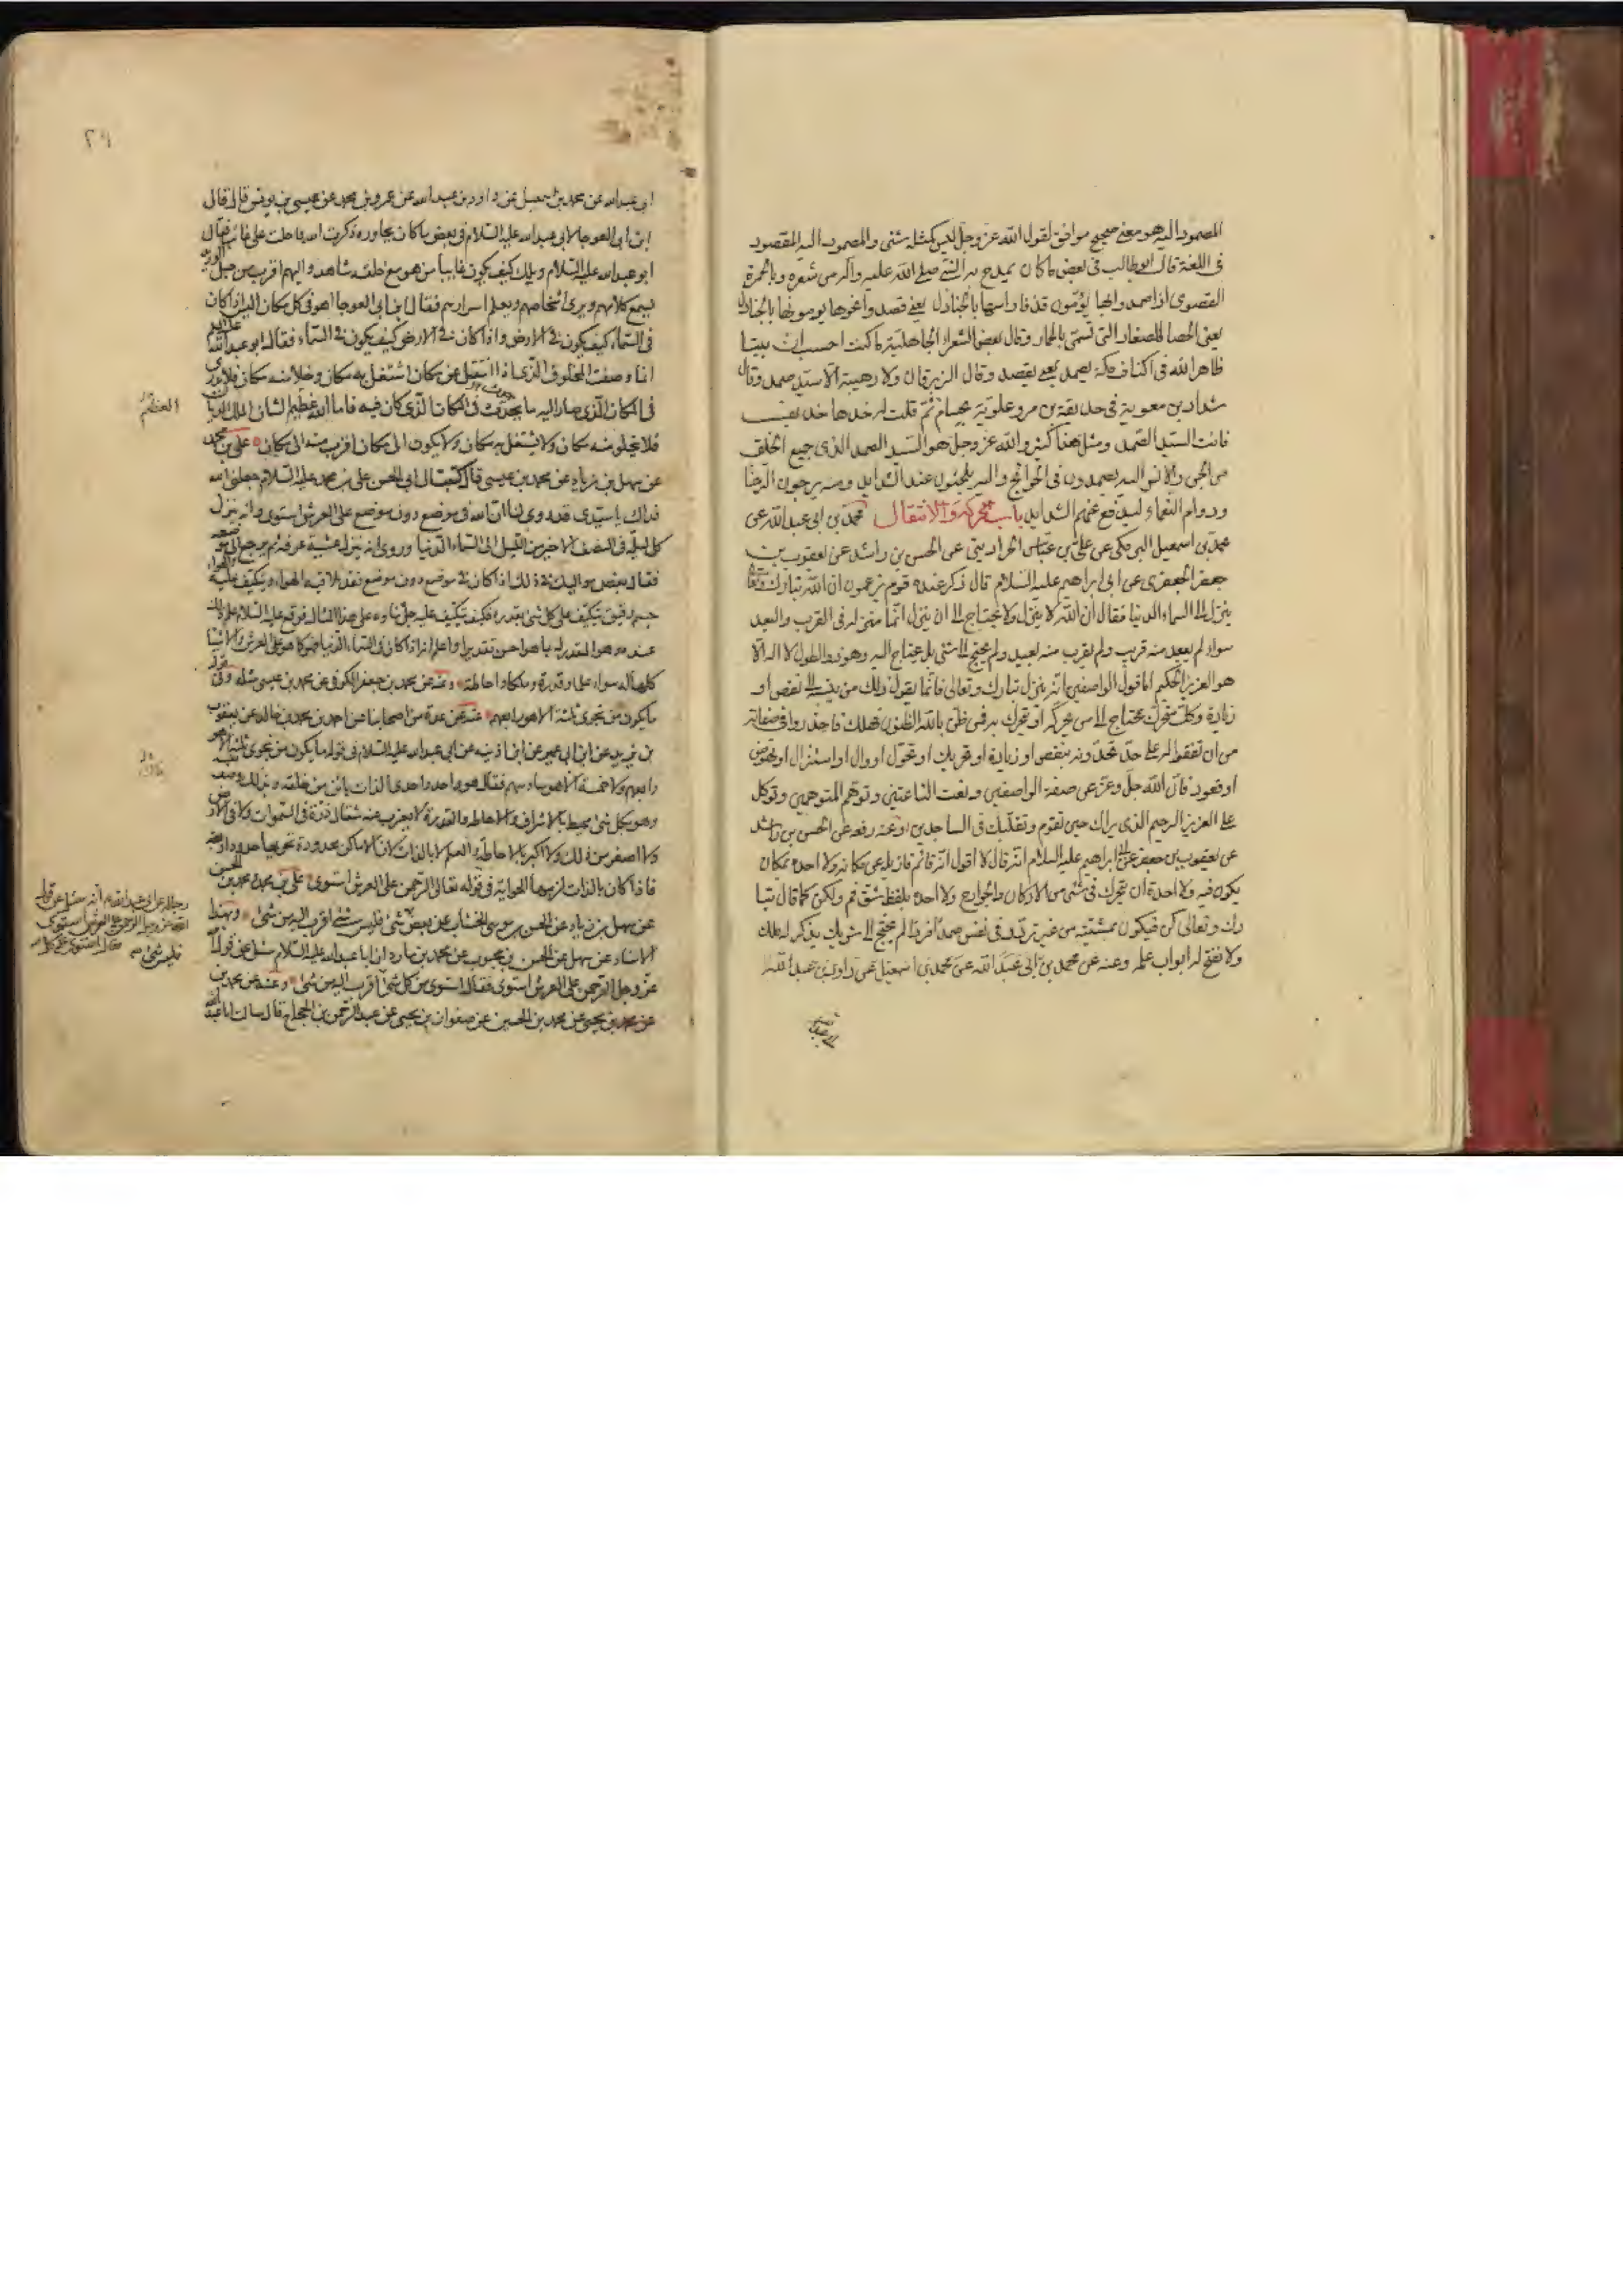 المصمود اليه هو معنى صحيح موافق لقول الله عز وجل ليس كمثله شئ والمصمود اليه المقصود
فى اللغة قال ابوطالب فى بعض ما كان يمدح به النبى صلى الله عليه واله من شعره وبالجمرة
القصوى اذا صمدوا لها يؤمون قذفا راسها بالجنادل يعنى قصدوا نحوها يرمونها بالجنادل
يعنى الحصا الصغار التى تسمى بالجمار وقال بعض الشعراء الجاهلية ما كنت احسب ان بيتا
ظاهرا لله فى اكناف مكة يصمد يعنى يقصد وقال الزبرقان ولا رهيبة الا سيد صمد وقال
شداد بن معوية فى حذيفة بن بدر علوته بحسام ثم قلت له خذها حذيف
فانت السيد الصمد ومثل هذا كثير والله عز وجل هو السيد الصمد الذى جميع الخلق
من الجن والانس اليه يصمدون فى الحوائج واليه يلجئون عند الشدايد ومنه يرجون الرخا
ودوام النعماء ليدفع عنهم الشدايد باب الحركة والانتقال محمد بن ابى عبد الله عن
محمد بن اسمعيل البرمكى عن على بن عباس الخراذينى عن الحسن بن راشد عن يعقوب بن
جعفر الجعفرى عن ابى ابراهيم عليه السلام قال ذكر عنده قوم يزعمون ان الله تبارك وتعالى
ينزل الى السماء الدنيا فقال ان الله لا ينزل ولا يحتاج الى ان ينزل انما منظره فى القرب والبعد
سواء لم يبعد منه قريب ولم يقرب منه بعيد ولم يحتج الى شئ بل يحتاج اليه وهو ذو الطول لا اله الا
هو العزيز الحكيم اما قول الواصفين انه ينزل تبارك وتعالى فانما يقول ذلك من ينسبه الى نقص او
زيادة وكل متحرك محتاج الى من يحركه او يتحرك به فمن ظن بالله الظنون هلك فاحذروا فى صفاته
من ان تقفوا له على حد تحدونه بنقص او زيادة او تحريك او تحرك او زوال او استنزال او نهوض
او قعود فان الله جل وعز عن صفة الواصفين ونعت الناعتين وتوهم المتوهمين وتوكل
على العزيز الرحيم الذى يراك حين تقوم وتقلبك فى الساجدين وعنه رفعه عن الحسن بن راشد
عن يعقوب بن جعفر عن ابى ابراهيم عليه السلام انه قال لا اقول انه قائم فازيله عن مكانه ولا احده بمكان
يكون فيه ولا احده ان يتحرك فى شئ من الاركان والجوارح ولا احده بلفظ شق فم ولكن كما قال تبا
رك وتعالى كن فيكون بمشيته من غير تردد فى نفس صمدا فردا لم يحتج الى شريك يذكر له ملكه
ولا يفتح له ابواب علمه وعنه عن محمد بن ابى عبد الله عن محمد بن اسمعيل عن داود بن عبد الله
٢٩
ابى عبد الله عن محمد بن اسمعيل عن داود بن عبد الله عن عمرو بن محمد عن عيسى بن يونس قال قال
ابن ابى العوجا لابى عبد الله عليه السلام فى بعض ما كان يحاوره ذكرت الله فاحلت على غائب فقال
ابو عبد الله عليه السلام ويلك كيف يكون غايبا من هو مع خلقه شاهد واليهم اقرب من حبل الوريد
يسمع كلامهم ويرى اشخاصهم ويعلم اسرارهم فقال ابن ابى العوجا اهو فى كل مكان اليس اذا كان
فى السماء كيف يكون فى الارض واذا كان فى الارض كيف يكون فى السماء فقال ابو عبد الله عليه السلام
انما وصفت المخلوق الذى اذا انتقل عن مكان اشتغل به مكان وخلا منه مكان فلا يدرى
فى المكان الذى صار اليه ما يحدث فى المكان الذى كان فيه فاما الله عظيم الشان الملك الديان
العظيم
فلا يخلو منه مكان ولا يشتغل به مكان ولا يكون الى مكان اقرب منه الى مكان على بن محمد
عن سهل بن زياد عن محمد بن عيسى قال كتبت الى ابى الحسن على بن محمد عليه السلام جعلنى الله
فداك يا سيدى قد روى لنا ان الله فى موضع دون موضع على العرش استوى وانه ينزل
كل ليلة فى النصف الاخير من الليل الى السماء الدنيا وروى انه ينزل عشية عرفة ثم يرجع الى موضعه
فقال بعض مواليك فى ذلك اذا كان فى موضع دون موضع فقد يلاقيه الهواء ويتكيف عليه والهواء
جسم رقيق يتكيف على كل شئ بقدره فكيف يتكيف عليه جل ثناوه على هذا المثال فوقع عليه السلام علم ذلك
عنده وهو المقدر له بما هو احسن تقديرا واعلم انه اذا كان فى السماء الدنيا فهو كما هو على العرش والاشيا
كلها له سواء علما وقدرة وملكا واحاطة وعنه عن محمد بن جعفر الكوفى عن محمد بن عيسى مثله وفى قوله
ما يكون من نجوى ثلثة الا هو رابعهم عنه عن عدة من اصحابنا عن احمد بن محمد بن خالد عن يعقوب
بن يزيد عن ابن ابى عمير عن ابن اذينه عن ابى عبد الله عليه السلام فى قوله ما يكون من نجوى ثلثة الا هو
رابعهم ولا خمسة الا هو سادسهم فقال هو واحد واحدى الذات باين من خلقه وبذلك وصف نفسه
وهو بكل شئ محيط بالاشراف والاحاطه والقدرة لا يعزب عنه مثقال ذرة فى السموات ولا فى الارض
ولا اصغر من ذلك ولا اكبر بالاحاطة والعلم لا بالذات لان الاماكن محدودة تحويها حدود اربعة
فاذا كان بالذات لزمها الحواية فى قوله تعالى الرحمن على العرش استوى على بن محمد ومحمد بن الحسن
عن سهل بن زياد عن الحسن بن موسى الخشاب عن بعض شئ فليس شئ اقرب اليه من شئ وبهذا
الاسناد عن سهل عن الحسن بن محبوب عن محمد بن مارد ان ابا عبد الله عليه السلام سئل عن قول الله
عز وجل الرحمن على العرش استوى فقال استوى من كل شئ فليس شئ اقرب اليه من شئ وعنه عن محمد بن
عن محمد بن يحيى عن محمد بن الحسين عن صفوان بن يحيى عن عبد الرحمن بن الحجاج قال سالت ابا عبد الله
رجاله عن ابى عبد الله عم انه سئل عن قول
الله عز وجل الرحمن على العرش استوى
فقال استوى على كل شئ
فليس شئ